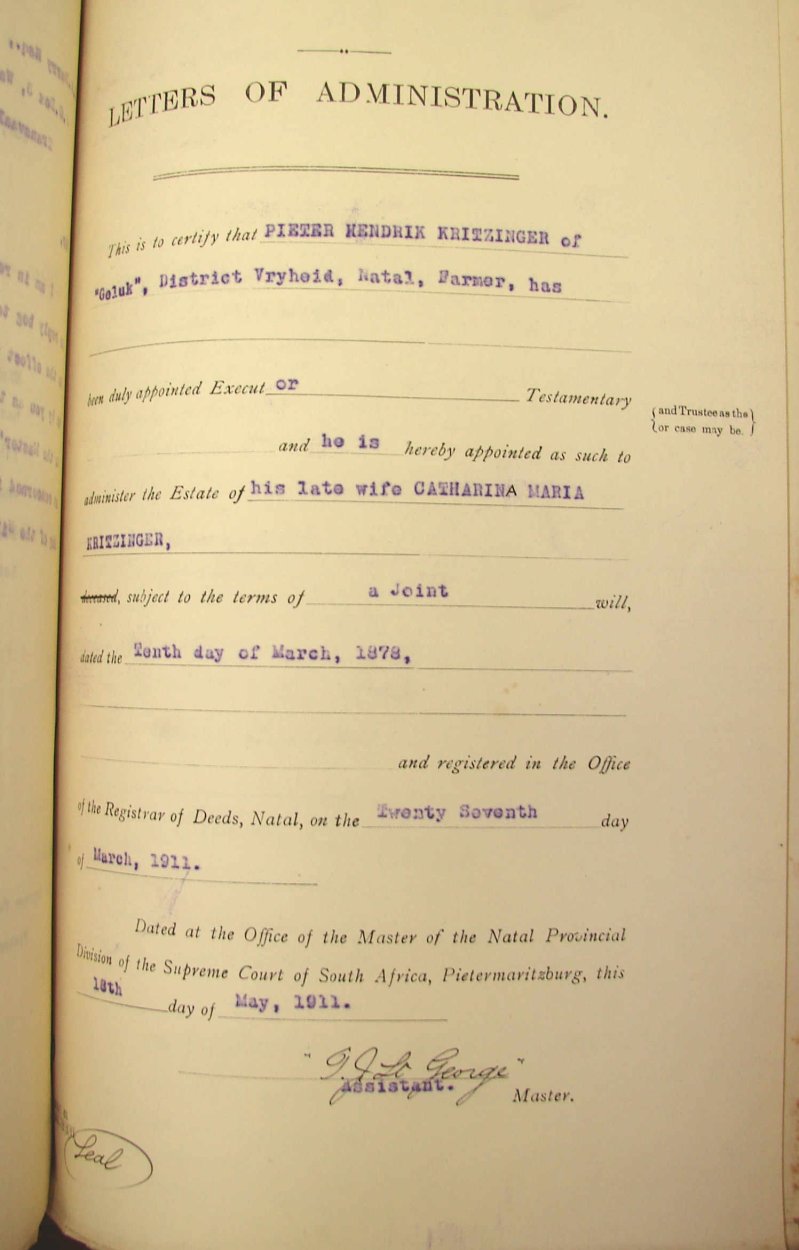 LETTERS OF ADMINISTRATION.
This is to certify that PIETER HENDRIK KRITZINGER of
"Geluk", District Vryheid, Natal, Farmer, has
been duly appointed Execut or Testamentary
(and Trustee as the
or case may be.)
and he is hereby appointed as such to
administer the Estate of his late wife CATHARINA MARIA
KRITZINGER,
deceased, subject to the terms of a Joint will,
dated the Tenth day of March, 1878,
and registered in the Office
of the Registrar of Deeds, Natal, on the Twenty Seventh day
of March, 1911.
Dated at the Office of the Master of the Natal Provincial
Division of the Supreme Court of South Africa, Pietermaritzburg, this
18th day of May, 1911.
"T J St George"
Assistant. Master.
Seal